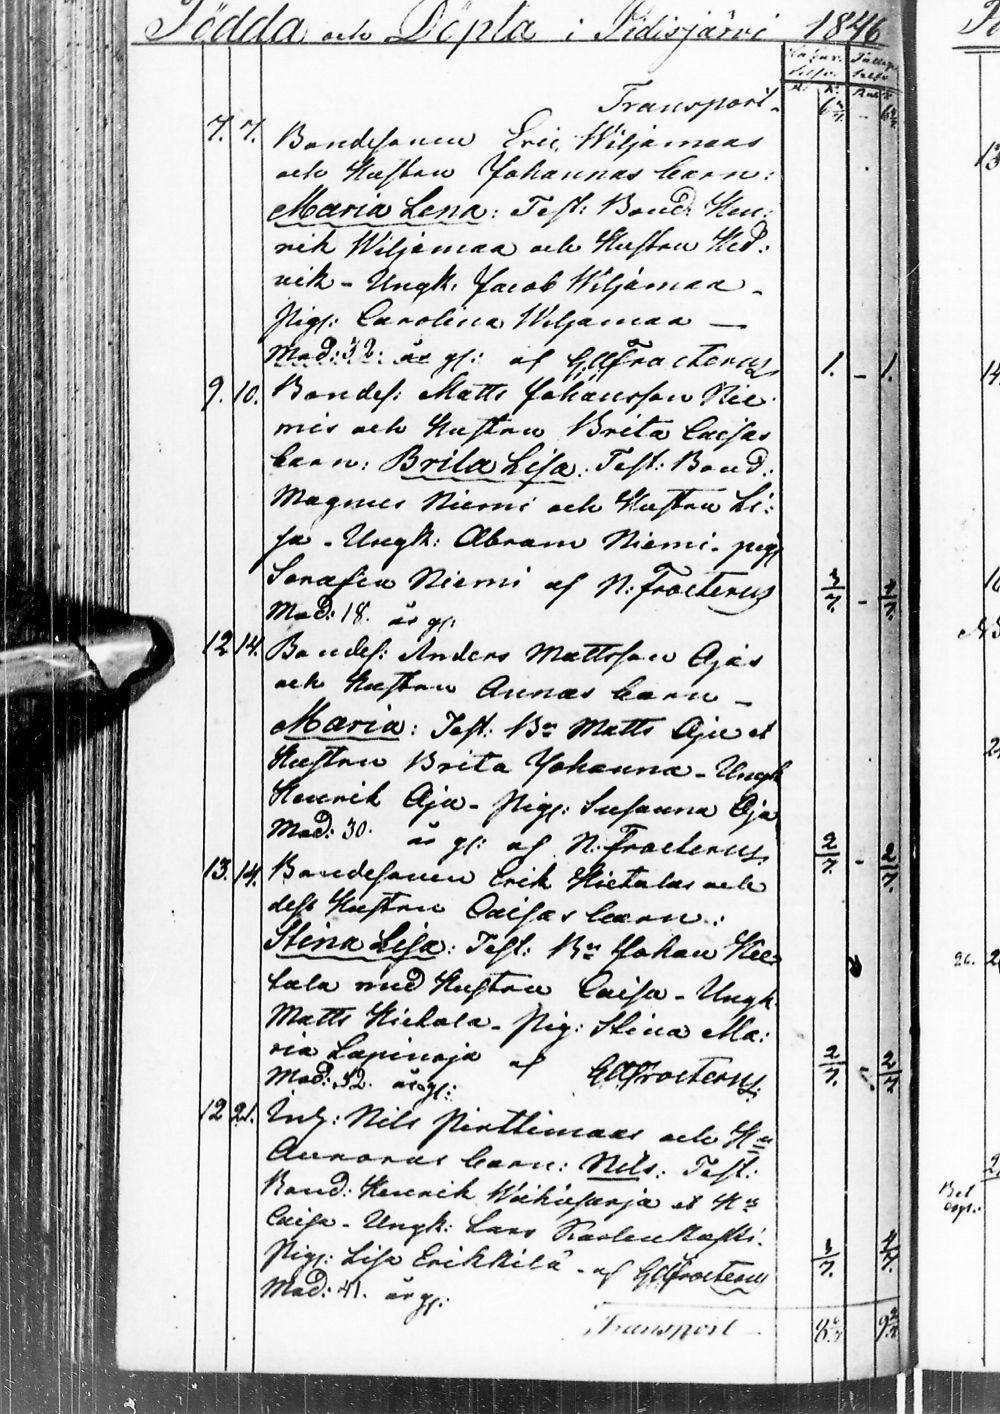 Födda och Döpta i Pidisjärvi 1846
Transport
7. 7. Bondesonen Eric Wiljamaas
och Hustru Johannas barn:
Maria Lena: Test: Bond: Hen:
rik Wiljamaa och Hustru Hed:
vik - Ungk: Jacob Wiljamaa -
Pig: Carolina Wiljamaa —
Mod: 32: år gl: af Frosterus 1. - 1.
9. 10. Bondes: Matts Johansson Nie
mis och Hustru Brita Caisas
barn: Brita Lisa: Test: Bond:
Magnus Niemi och Hustru Li:
sa - Ungk: Abram Niemi - pig
Serafia Niemi af N: Frosterus
Mod: 18. år gl:
12 14. Bondes: Anders Mattsson Ojas
och Hustru Annas barn -
Maria: Test: Bn Matts Oja et
Hustru Brita Johanna - Ungk
Henrik Oja - Pig: Susanna Oja
Mod: 30. år gl: af N: Frosterus 2/7. - 2/7.
13. 14. Bondesonen Erik Hietalas och
dess Hustru Caisas barn:
Stina Lisa: Test: Bn Johan Hie
tala med Hustru Caisa - Ungk
Matts Hietala - Pig: Stina Ma:
ria Lapinoja af Frosterus 2/7. - 2/7
Mod: 32. år gl:
12 21. Inh: Nils Pirttimaas och Hu
Auroras barn: Nils: Test:
Bond: Henrik et Hu
Caisa - Ungk: Lars
Pig: Lisa Erikkilä - af Frosterus
Mod: 41. år gl:
Transport